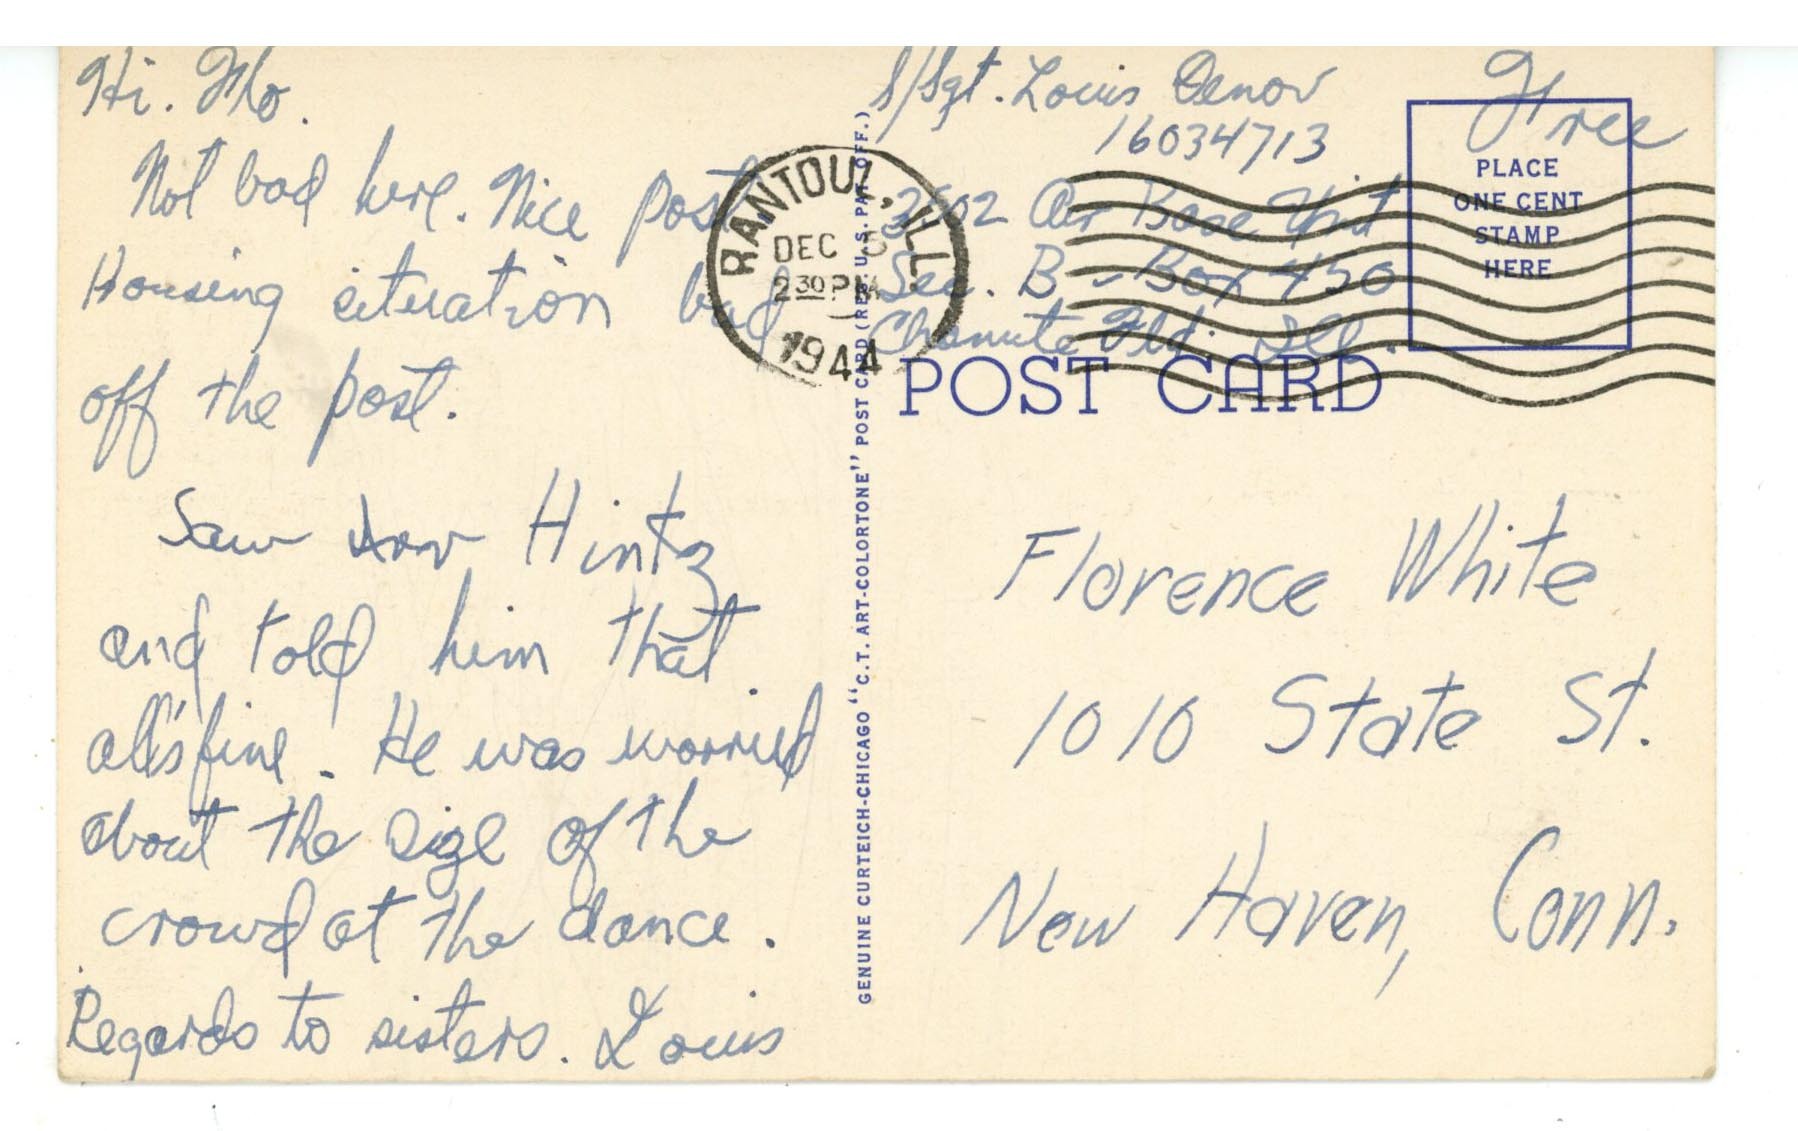 Hi. Flo.
Not bad here. Nice post
Housing situation bad
off the post.
Saw Hintz
and told him that
all's fine. He was worried
about the size of the
crowd at the dance.
Regards to sisters. Louis
RANTOUL, ILL.
DEC 5
2 30 PM
1944
GENUINE CURTEICH-CHICAGO "C.T. ART-COLORTONE" POST CARD (REG. U.S. PAT. OFF.)
S/Sgt. Louis
16034713
3502 Air Base Unit
Sec. B - Box 450
Chanute Fld. Ill.
Free
PLACE
ONE CENT
STAMP
HERE
POST CARD
Florence White
1010 State St.
New Haven, Conn.